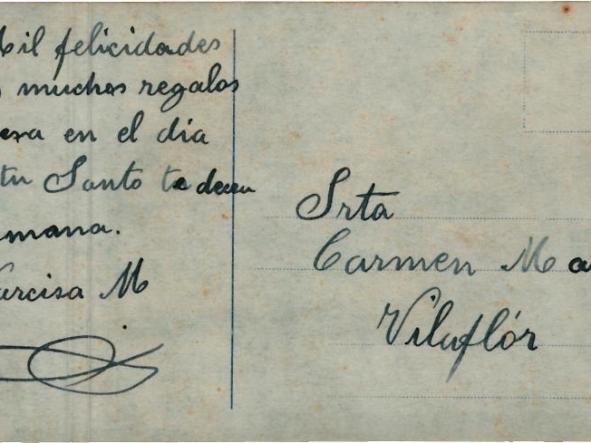 Mil felicidades
y muchos regalos
era en el día
tu Santo te desea
mana.
arcisa M
Srta
Carmen Ma
Vilaflór